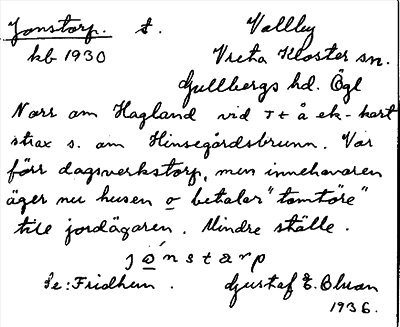 Jonstorp. t. Vallby
kb 1930 Vreta Kloster sn.
Gullbergs hd. Ögl
Norr om Hagland vid T t å ek-kart
strax s. om Hinsegårdsbrunn. Var
förr dagsverkstorp, men innehavaren
äger nu husen o betalar "tomtöre"
till jordägaren. Mindre ställe.
jónstarp
Se: Fridhem. Gustaf E. Olsson
1936.